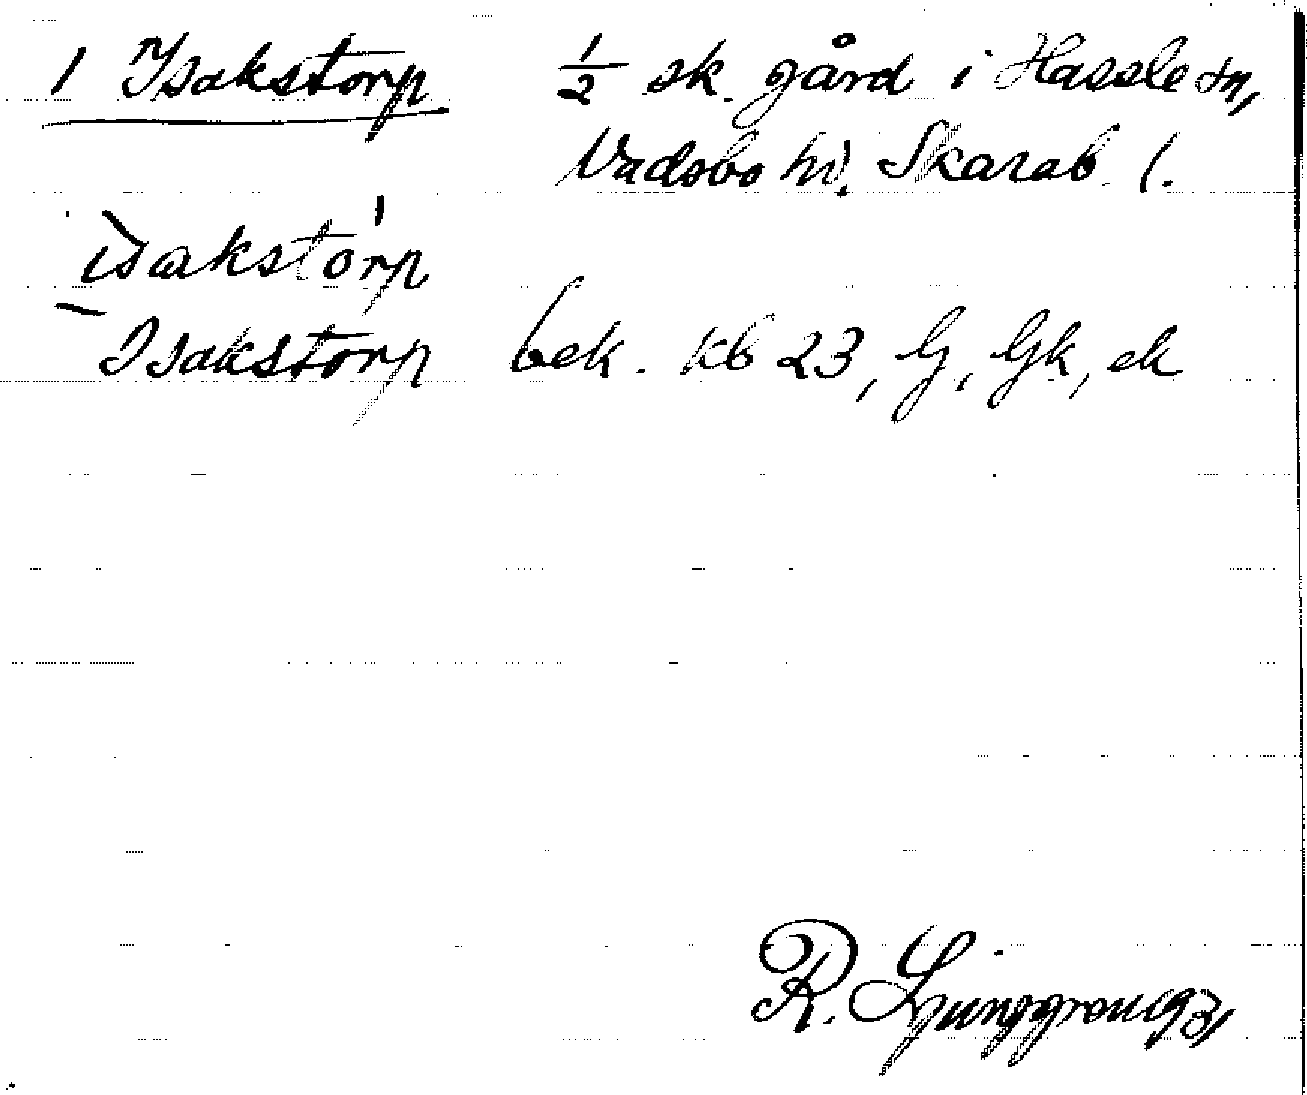 1 Isakstorp ½ sk. gård i Hassle sn,
Vadsbo hd. Skarab. l.
ìsakstórp
Isakstorp bek. kb 23, G, Gk, ek
R. Ljunggren 1931